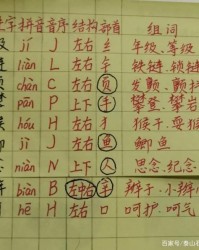 字 拼音 音序 结构 部首 组词
级 jí J 左右 纟 年级、等级
链 liàn L 左右 钅 铁链、锁链
颤 chàn C 左右 页 发颤、颤抖
攀 pān P 上下 手 攀登、攀岩
猴 hóu H 左右 犭 猴子、耍猴
鲫 jì J 左右 鱼 鲫鱼
念 niàn N 上下 人 思念、纪念
辫 biàn B 左中右 辛 辫子、小辫
呵 hē H 左右 口 呵护、呵气
百家号/泰山